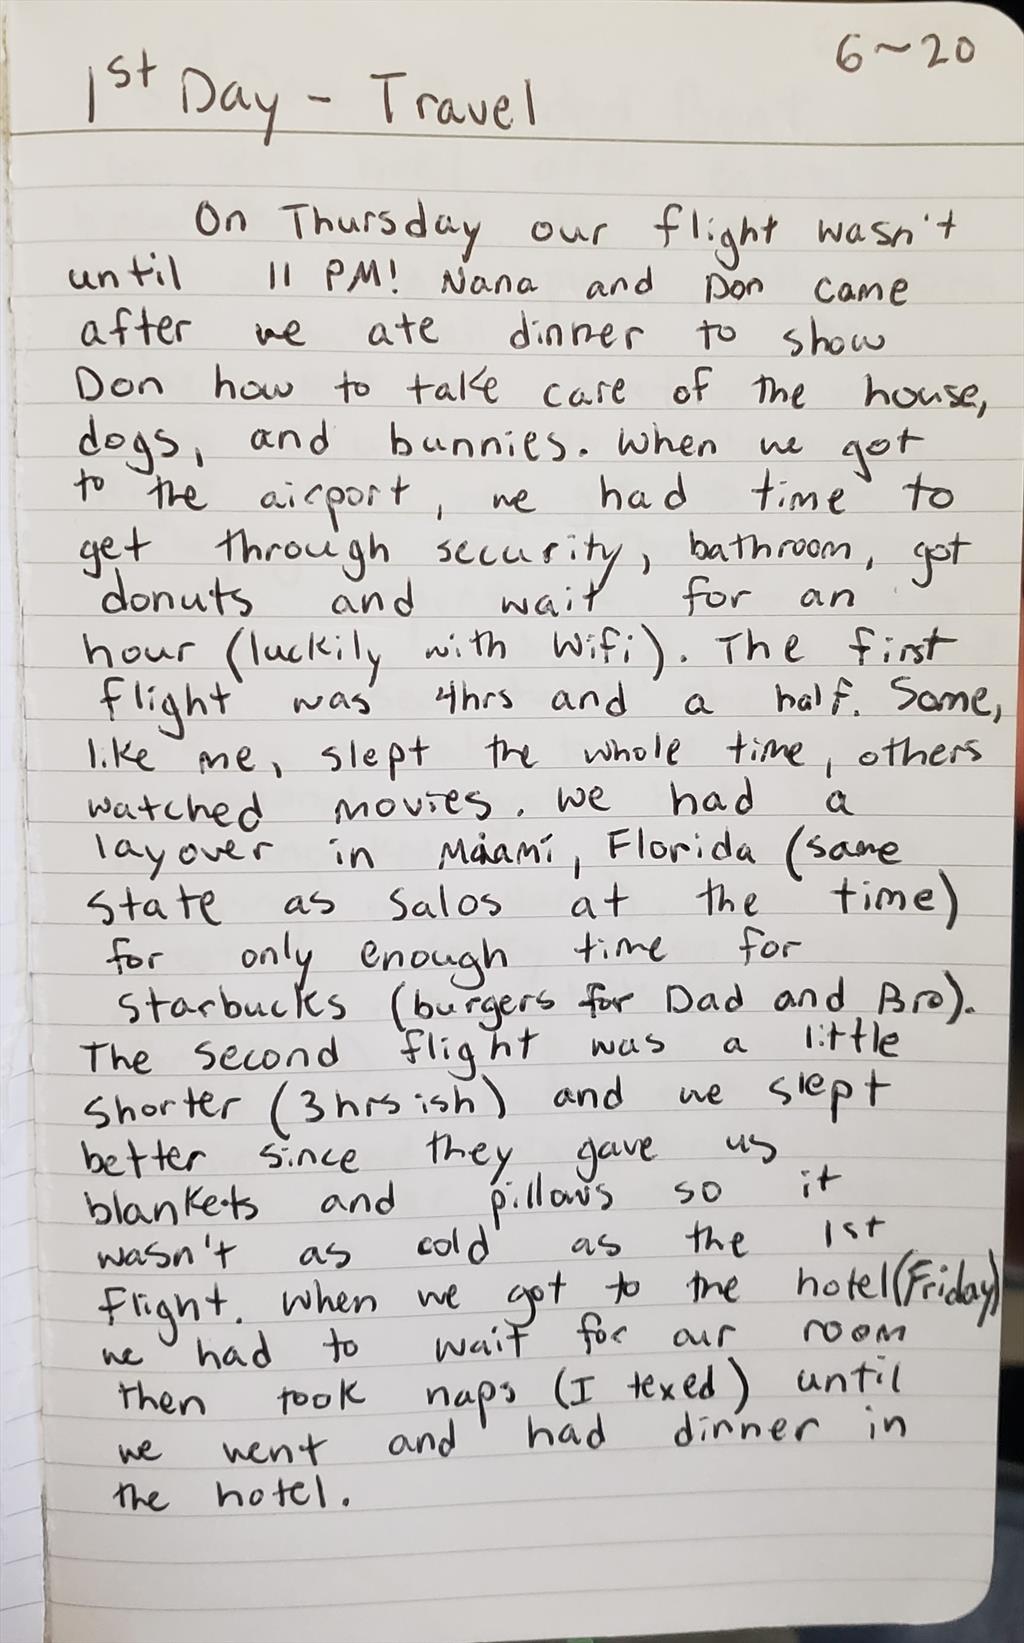 6~20
1st Day - Travel
On Thursday our flight wasn't
until 11 PM! Nana and Don came
after we ate dinner to show
Don how to take care of the house,
dogs, and bunnies. When we got
to the airport, we had time to
get through security, bathroom, got
donuts and wait for an
hour (luckily with Wifi). The first
flight was 4hrs and a half. Some,
like me, slept the whole time, others
watched movies. We had a
layover in Miami, Florida (same
state as Salos at the time)
for only enough time for
Starbucks (burgers for Dad and Bro).
The second flight was a little
shorter (3hrs ish) and we slept
better since they gave us
blankets and pillows so it
wasn't as cold as the 1st
flight. When we got to the hotel (Friday)
we had to wait for our room
then took naps (I texed) until
we went and had dinner in
the hotel.